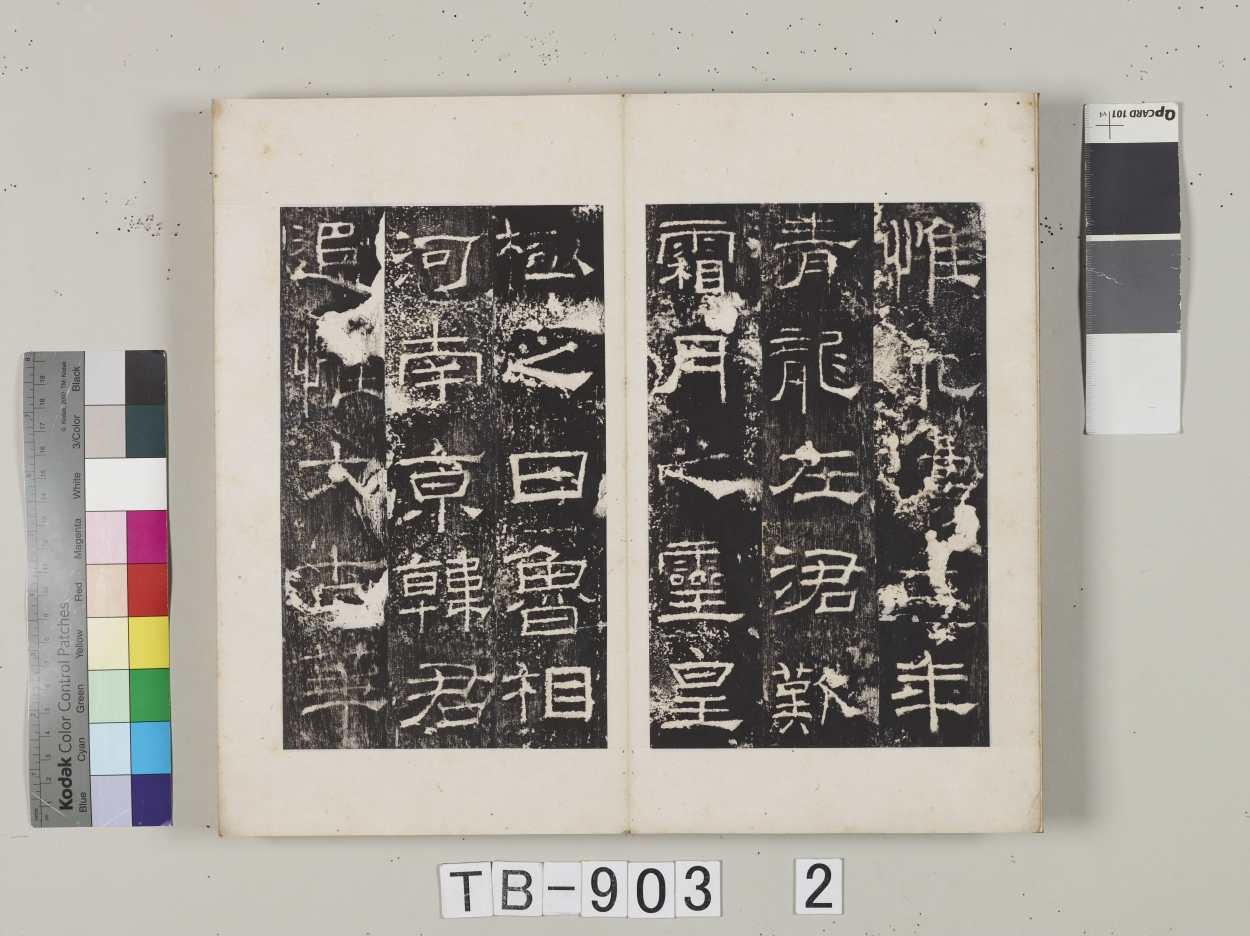 惟永壽二年
青龍在涒歎
霜月之靈皇
極之日魯相
河南京韓君
追惟太古華
QpCARD 101
Kodak Color Control Patches
© Kodak, 2007 TM: Kodak
Blue Cyan Green Yellow Red Magenta White 3/Color Black
TB-903 2